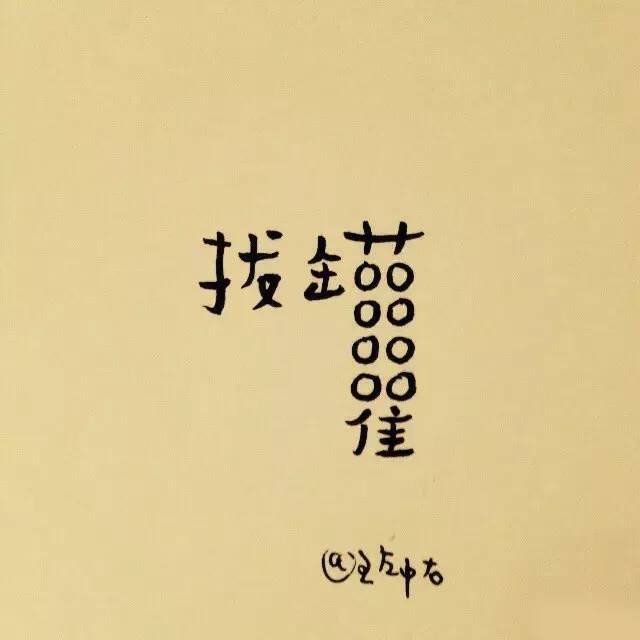 拔罐
@王左中右